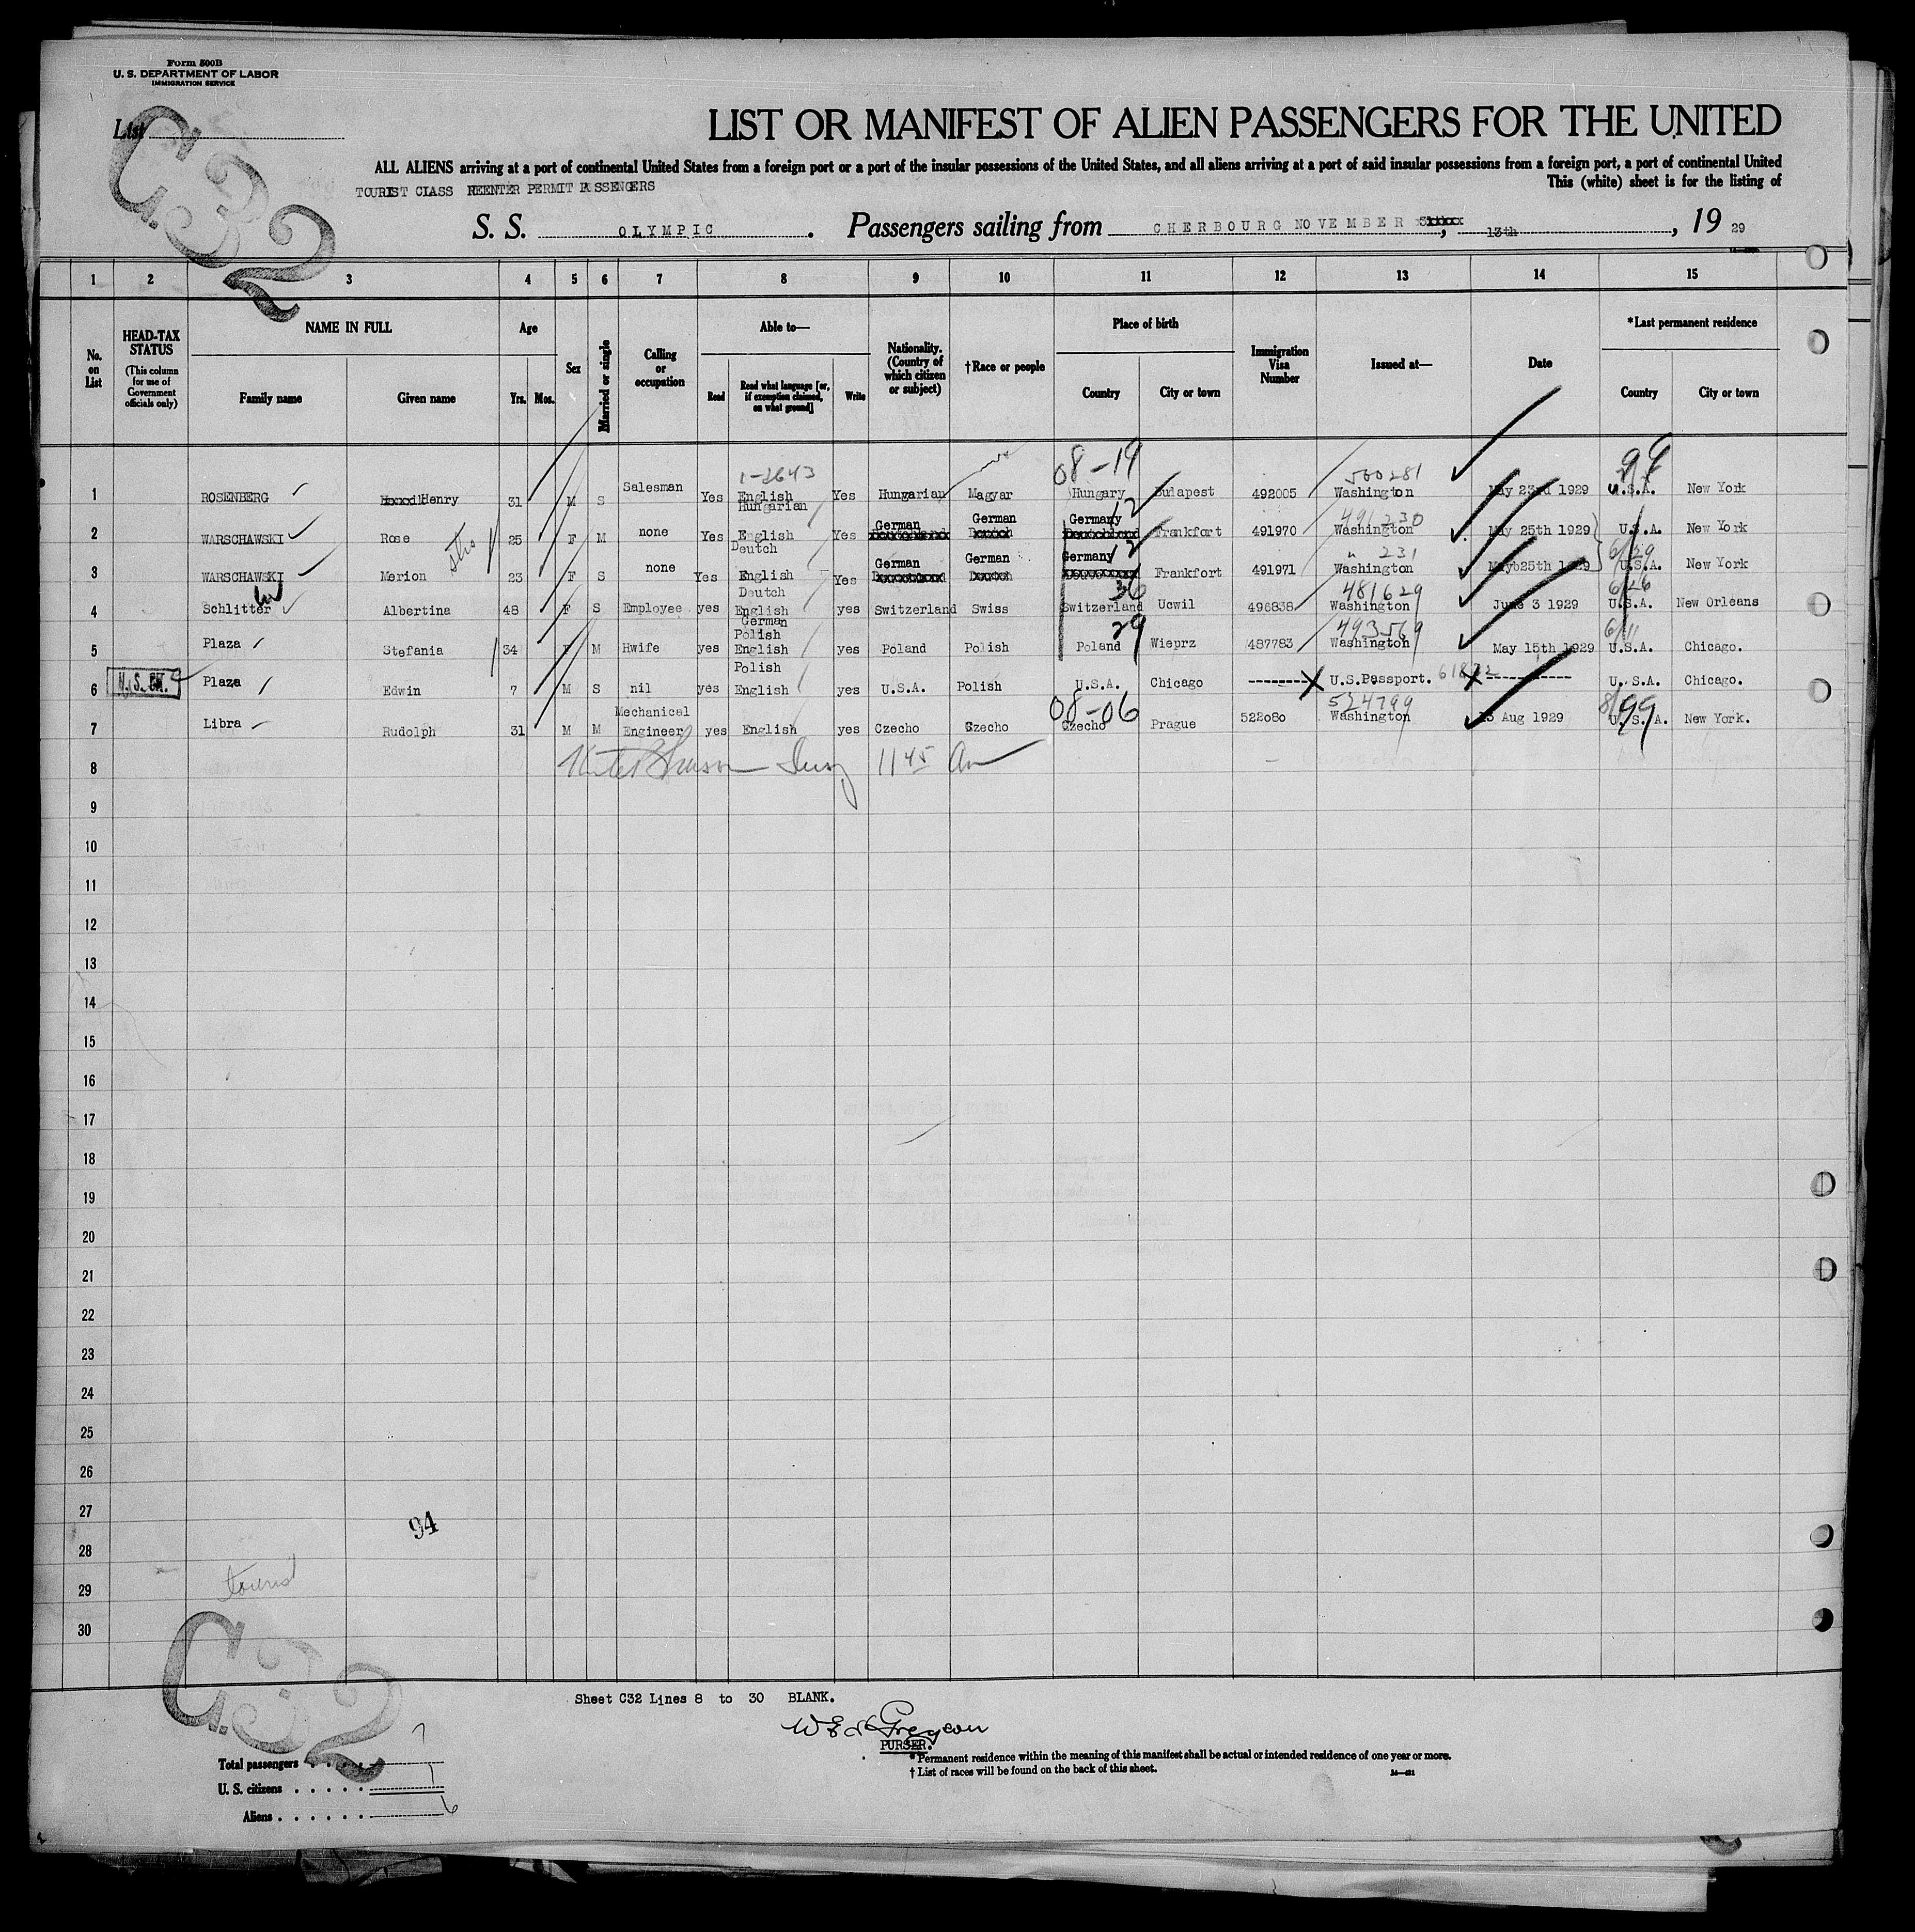 Form 500B
U. S. DEPARTMENT OF LABOR
IMMIGRATION SERVICE
List
C32
LIST OR MANIFEST OF ALIEN PASSENGERS FOR THE UNITED
ALL ALIENS arriving at a port of continental United States from a foreign port or a port of the insular possessions of the United States, and all aliens arriving at a port of said insular possessions from a foreign port, a port of continental United
TOURIST CLASS REENTER PERMIT PASSENGERS
This (white) sheet is for the listing of
S. S. OLYMPIC . Passengers sailing from CHERBOURG NOVEMBER , 13th , 19 29
1 2 3 4 5 6 7 8 9 10 11 12 13 14 15
No. on List
HEAD-TAX STATUS (This column for use of Government officials only)
NAME IN FULL
Family name Given name
Age
Yrs. Mos.
Sex
Married or single
Calling or occupation
Able to—
Read Read what language [or, if exemption claimed, on what ground] Write
Nationality. (Country of which citizen or subject)
†Race or people
Place of birth
Country City or town
Immigration Visa Number
Issued at—
Date
*Last permanent residence
Country City or town
1-2643 08-19 500281 99
1 ROSENBERG Henry 31 M S Salesman Yes English Hungarian Yes Hungarian Magyar Hungary Budapest 492005 Washington May 23rd 1929 U.S.A. New York
12 491230
2 WARSCHAWSKI Rose 25 F M none Yes English Deutch Yes German German Germany Frankfort 491970 Washington May 25th 1929 U.S.A. New York
12 " 231 6/29
3 WARSCHAWSKI Merion 23 F S none Yes English Deutch Yes German German Germany Frankfort 491971 Washington May 25th 1929 U.S.A. New York
36 481629 6/26
4 Schlitter Albertina 48 F S Employee yes English German yes Switzerland Swiss Switzerland Ucwil 496838 Washington June 3 1929 U.S.A. New Orleans
29 493569 6/11
5 Plaza Stefania 34 F M Hwife yes Polish English yes Poland Polish Poland Wieprz 487783 Washington May 15th 1929 U.S.A. Chicago.
6 U.S. Plaza Edwin 7 M S nil yes Polish English yes U.S.A. Polish U.S.A. Chicago -------- U.S.Passport. ------------ U.S.A. Chicago.
08-06 524799 8/99
7 Libra Rudolph 31 M M Mechanical Engineer yes English yes Czecho Czecho Czecho Prague 522080 Washington 13 Aug 1929 U.S.A. New York.
8 Insp 11 45 Am
9
10
11
12
13
14
15
16
17
18
19
20
21
22
23
24
25
26
27
94
28
29 tourist
30
C32
Sheet C32 Lines 8 to 30 BLANK.
PURSER.
Total passengers 7
U. S. citizens 1
Aliens 6
* Permanent residence within the meaning of this manifest shall be actual or intended residence of one year or more.
† List of races will be found on the back of this sheet.